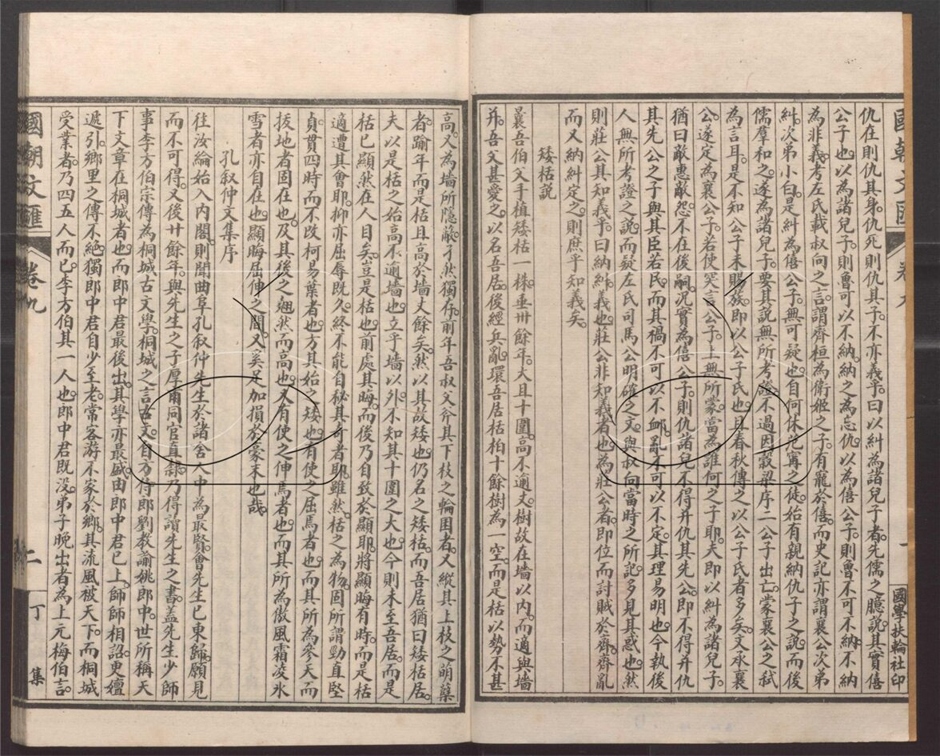 國朝文匯
卷九
國學扶輪社印
仇在則仇其身仇死則仇其子不亦義乎曰以糾為諸兒子者先儒之臆說其實僖
公子也以為諸兒子則魯可以不納納之為忘仇以為僖公子則魯不可不納不納
為非義考左氏載叔向之言謂齊桓為衛姬之子有寵於僖而史記亦謂襄公次弟
糾次弟小白是糾為僖公子無可疑也自何休范甯之徒始有親納仇子之說而後
儒羣和之遂為諸兒子要其說無所考證不過因穀梁序二公子出亡蒙襄公之弒
為言耳是不知公子未賜族即以公子氏也且春秋傳之以公子氏者多矣文承襄
公遂定為襄公子若使突言公子上無所蒙當為誰何之子耶夫即以糾為諸兒子
猶曰敵惠敵怨不在後嗣況實為僖公子則仇諸兒不得并仇其先公即不得并仇
其先公之子與其臣若民而其禍不可以不衈亂不可以不定其理易明也今執後
人無所考證之說而疑左氏司馬公明確之文與叔向當時之所記多見其惑也然
則莊公其知義乎曰納糾義也莊公非知義者也為莊公者即位而討賊於齊齊亂
而又納糾定之則庶乎知義矣
矮桰說
曩吾伯父手植矮桰一株垂卅餘年大且十圍高不逾丈樹故在墻以内而適與墻
并吾父甚愛之以名吾居後經兵亂環吾居桰柏十餘樹為一空而是桰以勢不甚
高又為墻所隱蔽孑然獨存前年吾叔父斧其下枝之輪囷者又縱其上枝之萌蘖
者踰年而是桰且高於墻丈餘矣然以其故矮也仍名之矮桰而吾居猶曰矮桰居
夫以是桰之始高不逾墻也立乎墻以外不知其十圍之大也今則未至吾居而是
桰已顯然在人目矣豈是桰也前處其晦而後乃自致於顯耶將顯晦有時而是桰
適遭其會耶抑亦屈辱既久終不能自秘其奇者耶雖然桰之為物固所謂勁直堅
貞貫四時而不改柯易葉者也方其始之矮也有使之屈焉者也而其所為參天而
拔地者固在也及其後之翹然而高也又有使之伸焉者也而其所為傲風霜凌氷
雪者亦自在也顯晦屈伸之間又奚足加損於豪末也哉
孔叙仲文集序
往汝綸始入内閣則聞曲阜孔叙仲先生於諸舍人中為最賢會先生已東歸願見
而不可得又後廿餘年與先生之子厚甫同官直隸乃得讀先生之書蓋先生少師
事李方伯宗傳為桐城古文學桐城之言古文自方侍郎劉教諭姚郎中世所稱天
下文章在桐城者也而郎中君最後出其學亦最盛由郎中君已上師師相詔更嬗
遞引鄉里之傳不絶獨郎中君自少至老常客游不家於鄉其流風被天下而桐城
受業者乃四五人而已李方伯其一人也郎中君既没弟子晚出者為上元梅伯言
國朝文匯
卷九
二
丁
集